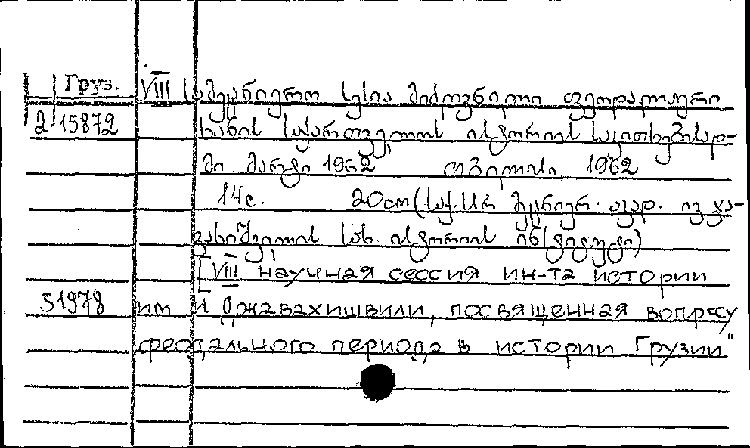 Груз. VIII სამეცნიერო სესია მიძღვნილი ფეოდალური
2-15872 ხანის საქართველოს ისტორიის საკითხებისად-
მი მარტი 1962 თბილისი 1962
14с. 20cm (საქ. სსრ მეცნიერ. აკად. ივ. ჯა-
ვახიშვილის სახ. ისტორიის ინსტიტუტი)
[VIII научная сессия ин-та истории
51978 им И Джавахишвили, посвященная вопросу
феодального периода в истории Грузии"